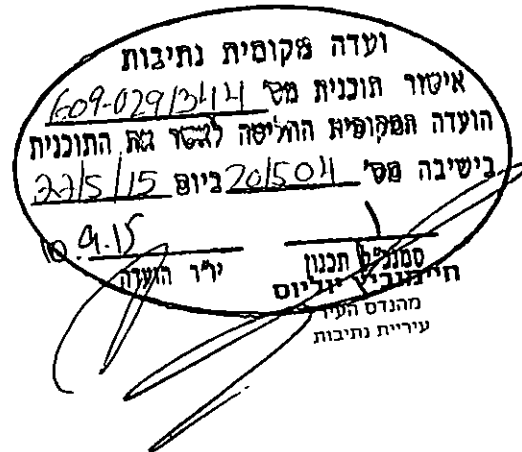 ועדה מקומית נתיבות
אישור תוכנית מס' 609-0291344
הועדה המקומית החליטה לאשר את התוכנית
בישיבה מס' 201504 ביום 27/5/15
10.9.15
סמנכ"ל תכנון
יו"ר הועדה
חיימוביץ יוליוס
מהנדס העיר
עיריית נתיבות